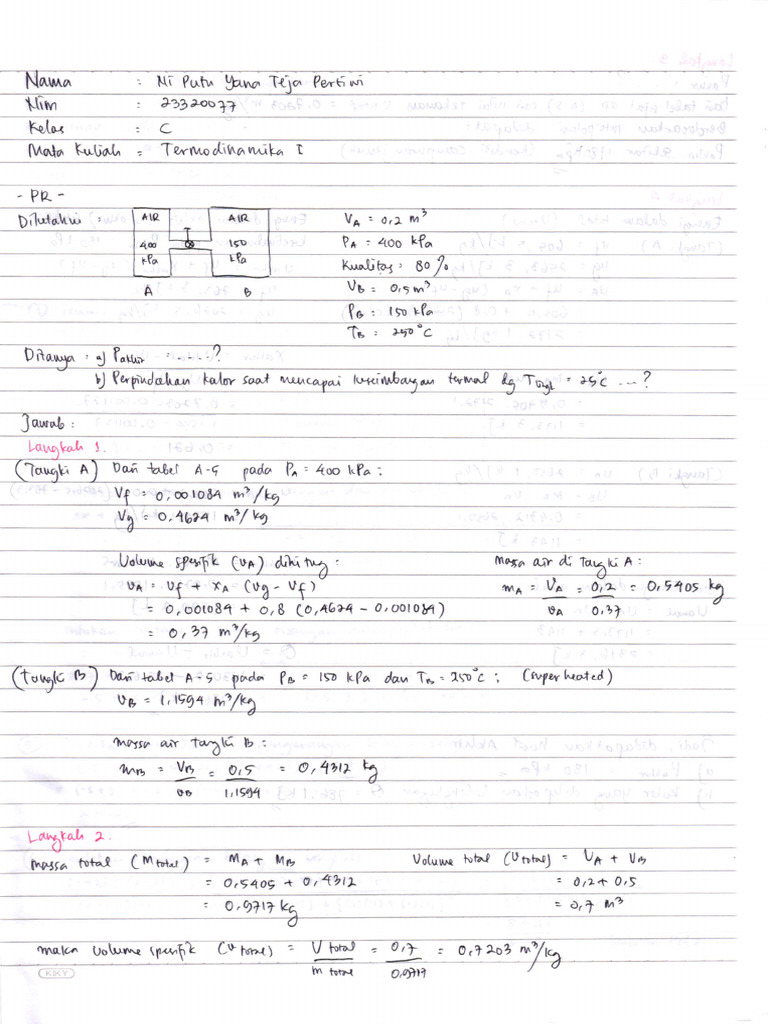 Nama : Ni Putu Yana Teja Pertiwi
Nim : 23320077
Kelas : C
Mata Kuliah = Termodinamika I
- PR -
Diketahui :
AIR 400 kPa A
AIR 150 kPa B
VA = 0,2 m³
PA = 400 kPa
Kualitas : 80 %
VB = 0,5 m³
PB = 150 kPa
TB = 250°C
Ditanya : a) Pakhir = ......?
b) Perpindahan kalor saat mencapai keseimbangan termal dg Tlingk = 25°C ...?
Jawab :
Langkah 1.
(Tangki A) Dari tabel A-5 pada PA = 400 kPa :
Vf = 0,001084 m³/kg
Vg = 0,4624 m³/kg
Volume spesifik (vA) dihitung :
vA = vf + xA (vg - vf)
= 0,001084 + 0,8 (0,4624 - 0,001084)
= 0,37 m³/kg
massa air di tangki A :
mA = VA / vA = 0,2 / 0,37 = 0,5405 kg
(Tangki B) Dari tabel A-5 pada PB = 150 kPa dan TB = 250°C ; (superheated)
vB = 1,1594 m³/kg
massa air tangki B :
mB = VB / vB = 0,5 / 1,1594 = 0,4312 kg
Langkah 2.
massa total (mtotal) = MA + MB
= 0,5405 + 0,4312
= 0,9717 kg
Volume total (Vtotal) = VA + VB
= 0,2 + 0,5
= 0,7 m³
maka volume spesifik (vtotal) = V total / m total = 0,7 / 0,9717 = 0,7203 m³/kg
KKY